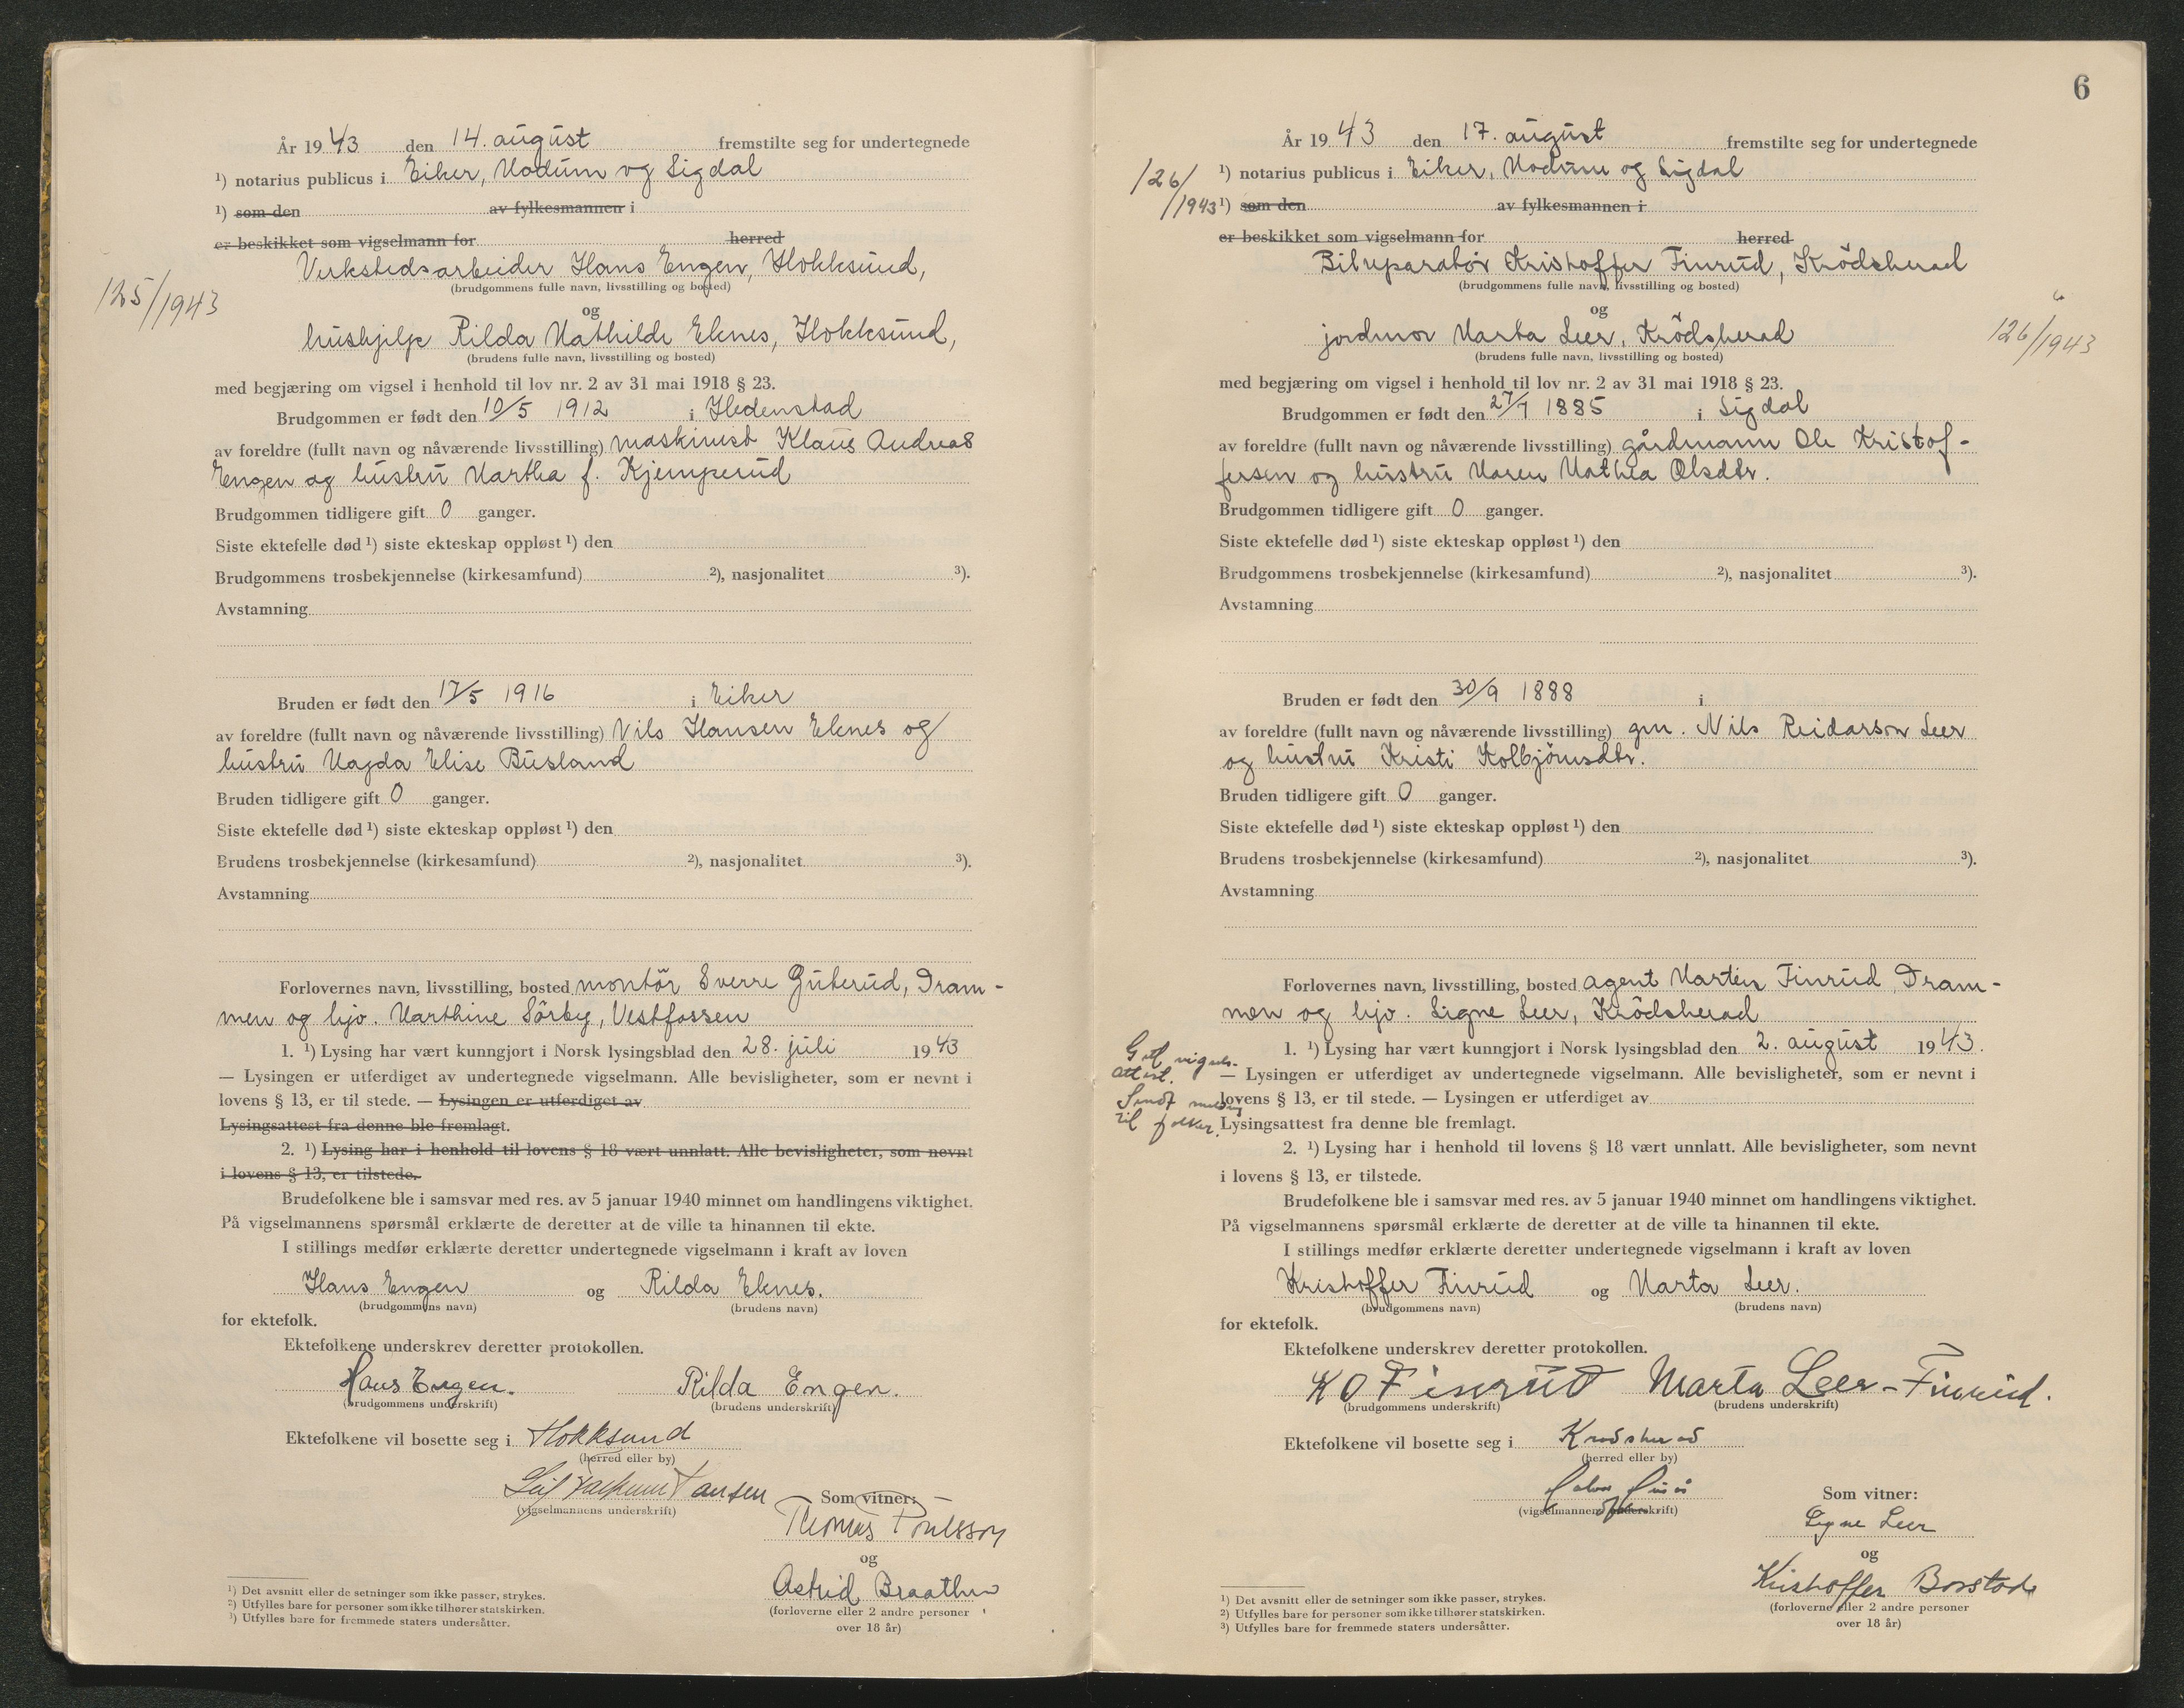 År 19 43 den 14. august fremstilte seg for undertegnede
¹) notarius publicus i Eiker, Modum og Sigdal
¹) som den av fylkesmannen i
er beskikket som vigselmann for herred
Verkstedsarbeider Hans Engen, Hokksund,
(brudgommens fulle navn, livsstilling og bosted)
125/1943
og
hushjelp Rilda Mathilde Eknes, Hokksund,
(brudens fulle navn, livsstilling og bosted)
med begjæring om vigsel i henhold til lov nr. 2 av 31 mai 1918 § 23.
Brudgommen er født den 10/5 1912 i Hedenstad
av foreldre (fullt navn og nåværende livsstilling) maskinist Klaus Andreas
Engen og hustru Martha f. Kjemperud
Brudgommen tidligere gift 0 ganger.
Siste ektefelle død ¹) siste ekteskap oppløst ¹) den
Brudgommens trosbekjennelse (kirkesamfund) ²), nasjonalitet ³).
Avstamning
Bruden er født den 17/5 1916 i Eiker
av foreldre (fullt navn og nåværende livsstilling) Nils Hansen Eknes og
hustru Magda Elise Busland
Bruden tidligere gift 0 ganger.
Siste ektefelle død ¹) siste ekteskap oppløst ¹) den
Brudens trosbekjennelse (kirkesamfund) ²), nasjonalitet ³).
Avstamning
Forlovernes navn, livsstilling, bosted montör Sverre Guterud, Dram-
men og hjv. Marthine Sörby, Vestfossen
1. ¹) Lysing har vært kunngjort i Norsk lysingsblad den 28. juli 19 43
— Lysingen er utferdiget av undertegnede vigselmann. Alle bevisligheter, som er nevnt i
lovens § 13, er til stede. — Lysingen er utferdiget av
Lysingsattest fra denne ble fremlagt.
2. ¹) Lysing har i henhold til lovens § 18 vært unnlatt. Alle bevisligheter, som nevnt
i lovens § 13, er tilstede.
Brudefolkene ble i samsvar med res. av 5 januar 1940 minnet om handlingens viktighet.
På vigselmannens spørsmål erklærte de deretter at de ville ta hinannen til ekte.
I stillings medfør erklærte deretter undertegnede vigselmann i kraft av loven
Hans Engen og Rilda Eknes.
(brudgommens navn) (brudens navn)
for ektefolk.
Ektefolkene underskrev deretter protokollen.
Hans Engen. Rilda Engen.
(brudgommens underskrift) (brudens underskrift)
Ektefolkene vil bosette seg i Hokksund
(herred eller by)
(vigselmannens underskrift)
Som vitner:
Thomas Poulsson
og
Astrid Braathen
(forloverne eller 2 andre personer
over 18 år)
¹) Det avsnitt eller de setninger som ikke passer, strykes.
²) Utfylles bare for personer som ikke tilhører statskirken.
³) Utfylles bare for fremmede staters undersåtter.
6
År 19 43 den 17. august fremstilte seg for undertegnede
126/1943
¹) notarius publicus i Eiker, Modum og Sigdal
¹) som den av fylkesmannen i
er beskikket som vigselmann for herred
Bilreparatör Kristoffer Finrud, Krödsherad
(brudgommens fulle navn, livsstilling og bosted)
og
jordmor Marta Leer, Krödsherad
126/1943
(brudens fulle navn, livsstilling og bosted)
med begjæring om vigsel i henhold til lov nr. 2 av 31 mai 1918 § 23.
Brudgommen er født den 27/7 1885 i Sigdal
av foreldre (fullt navn og nåværende livsstilling) gårdmann Ole Kristof-
fersen og hustru Maren Mathea Olsdtr.
Brudgommen tidligere gift 0 ganger.
Siste ektefelle død ¹) siste ekteskap oppløst ¹) den
Brudgommens trosbekjennelse (kirkesamfund) ²), nasjonalitet ³).
Avstamning
Bruden er født den 30/9 1888 i
av foreldre (fullt navn og nåværende livsstilling) gm. Nils Reidarson Leer
og hustru Kristi Kolbjörnsdtr.
Bruden tidligere gift 0 ganger.
Siste ektefelle død ¹) siste ekteskap oppløst ¹) den
Brudens trosbekjennelse (kirkesamfund) ²), nasjonalitet ³).
Avstamning
Forlovernes navn, livsstilling, bosted agent Martin Finrud, Dram-
men og hjv. Signe Leer, Krödsherad
1. ¹) Lysing har vært kunngjort i Norsk lysingsblad den 2. august 19 43.
Gitt vigsels-
attest.
Sendt melding
til folker.
— Lysingen er utferdiget av undertegnede vigselmann. Alle bevisligheter, som er nevnt i
lovens § 13, er til stede. — Lysingen er utferdiget av
Lysingsattest fra denne ble fremlagt.
2. ¹) Lysing har i henhold til lovens § 18 vært unnlatt. Alle bevisligheter, som nevnt
i lovens § 13, er tilstede.
Brudefolkene ble i samsvar med res. av 5 januar 1940 minnet om handlingens viktighet.
På vigselmannens spørsmål erklærte de deretter at de ville ta hinannen til ekte.
I stillings medfør erklærte deretter undertegnede vigselmann i kraft av loven
Kristoffer Finrud og Marta Leer.
(brudgommens navn) (brudens navn)
for ektefolk.
Ektefolkene underskrev deretter protokollen.
K O Finrud Marta Leer-Finrud.
(brudgommens underskrift) (brudens underskrift)
Ektefolkene vil bosette seg i Krødsherad
(herred eller by)
(vigselmannens underskrift)
Som vitner:
Signe Leer
og
Kristoffer Borstad
(forloverne eller 2 andre personer
over 18 år)
¹) Det avsnitt eller de setninger som ikke passer, strykes.
²) Utfylles bare for personer som ikke tilhører statskirken.
³) Utfylles bare for fremmede staters undersåtter.